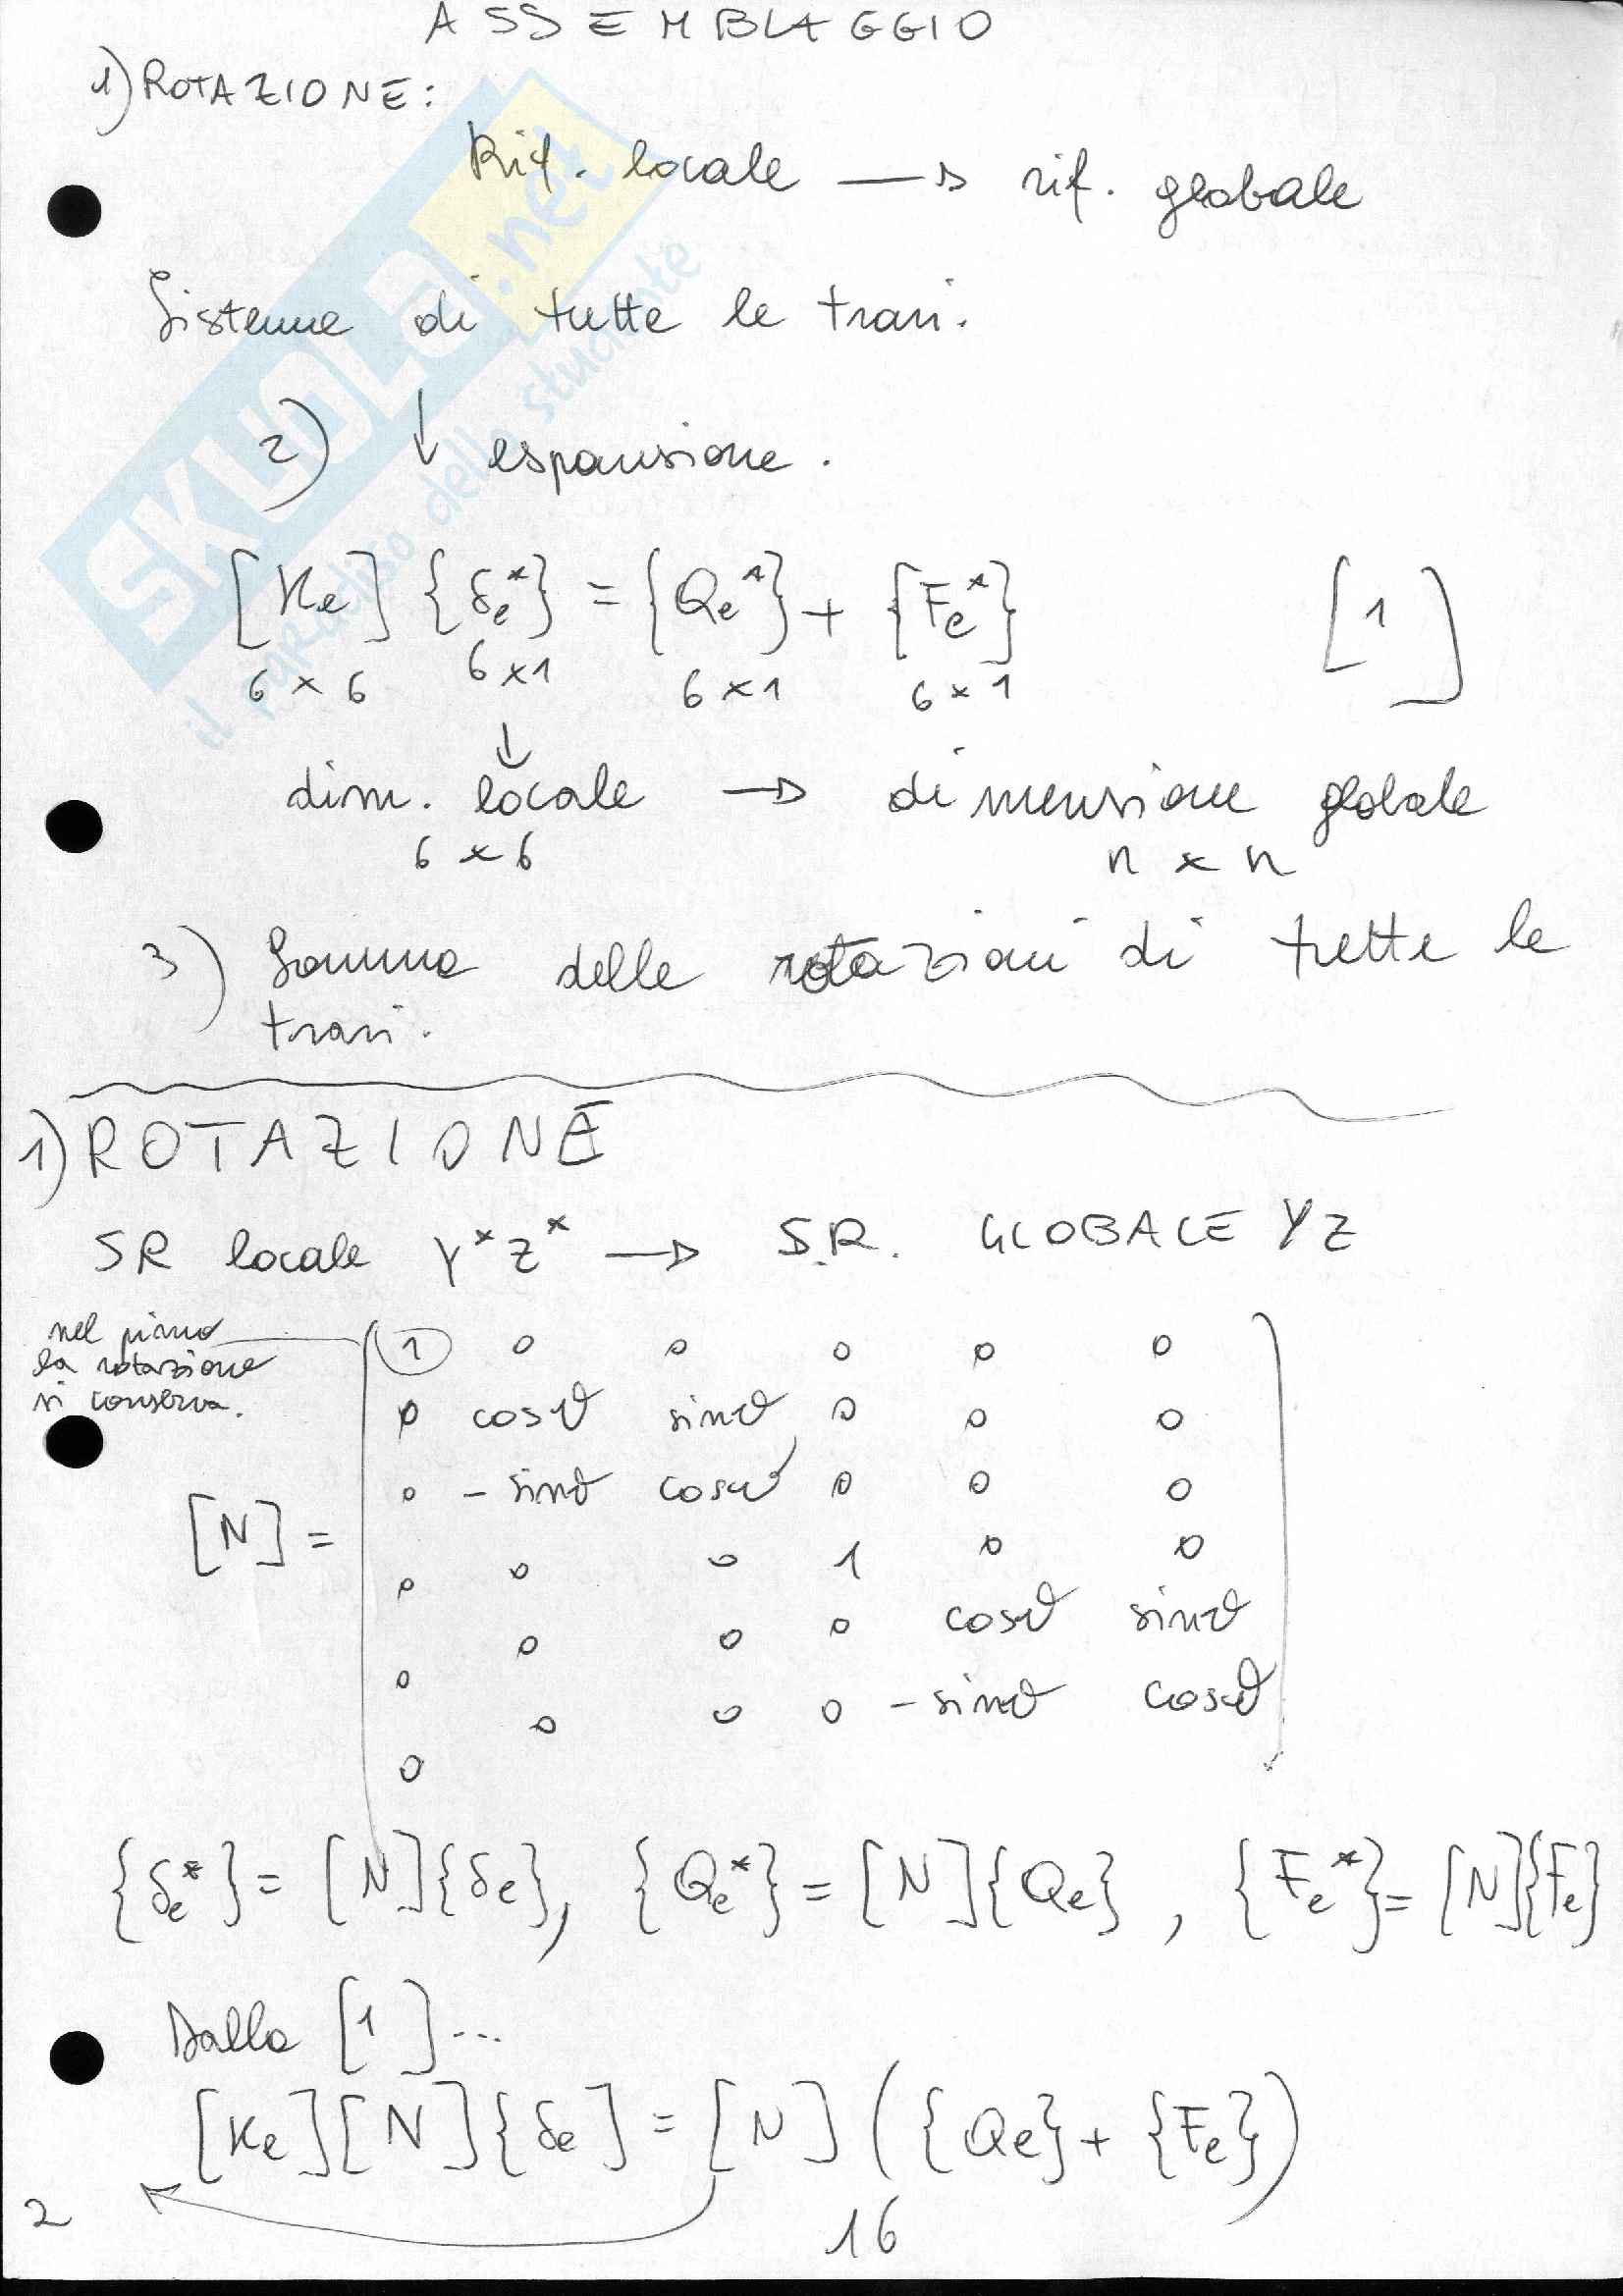 ASSEMBLAGGIO
1) ROTAZIONE:
Rif. locale → rif. globale
Sistema di tutte le travi.
2) ↓ espansione.
[Ke] {δe*} = {Qe*} + {Fe*} [1]
6 x 6 6 x 1 6 x 1 6 x 1
↓
dim. locale → dimensione globale
6 x 6 n x n
3) Somma delle rotazioni di tutte le
travi.
1) ROTAZIONE
SR locale Y* Z* → S.R. GLOBALE YZ
nel piano
la rotazione
si conserva.
[N] =
1 0 0 0 0 0
0 cosϑ sinϑ 0 0 0
0 -sinϑ cosϑ 0 0 0
0 0 0 1 0 0
0 0 0 0 cosϑ sinϑ
0 0 0 0 -sinϑ cosϑ
{δe*} = [N]{δe}, {Qe*} = [N]{Qe}, {Fe*} = [N]{Fe}
Dalla [1]...
[Ke][N]{δe] = [N] ({Qe} + {Fe})
2
16
SKUOLA.net
il paradiso dello studente